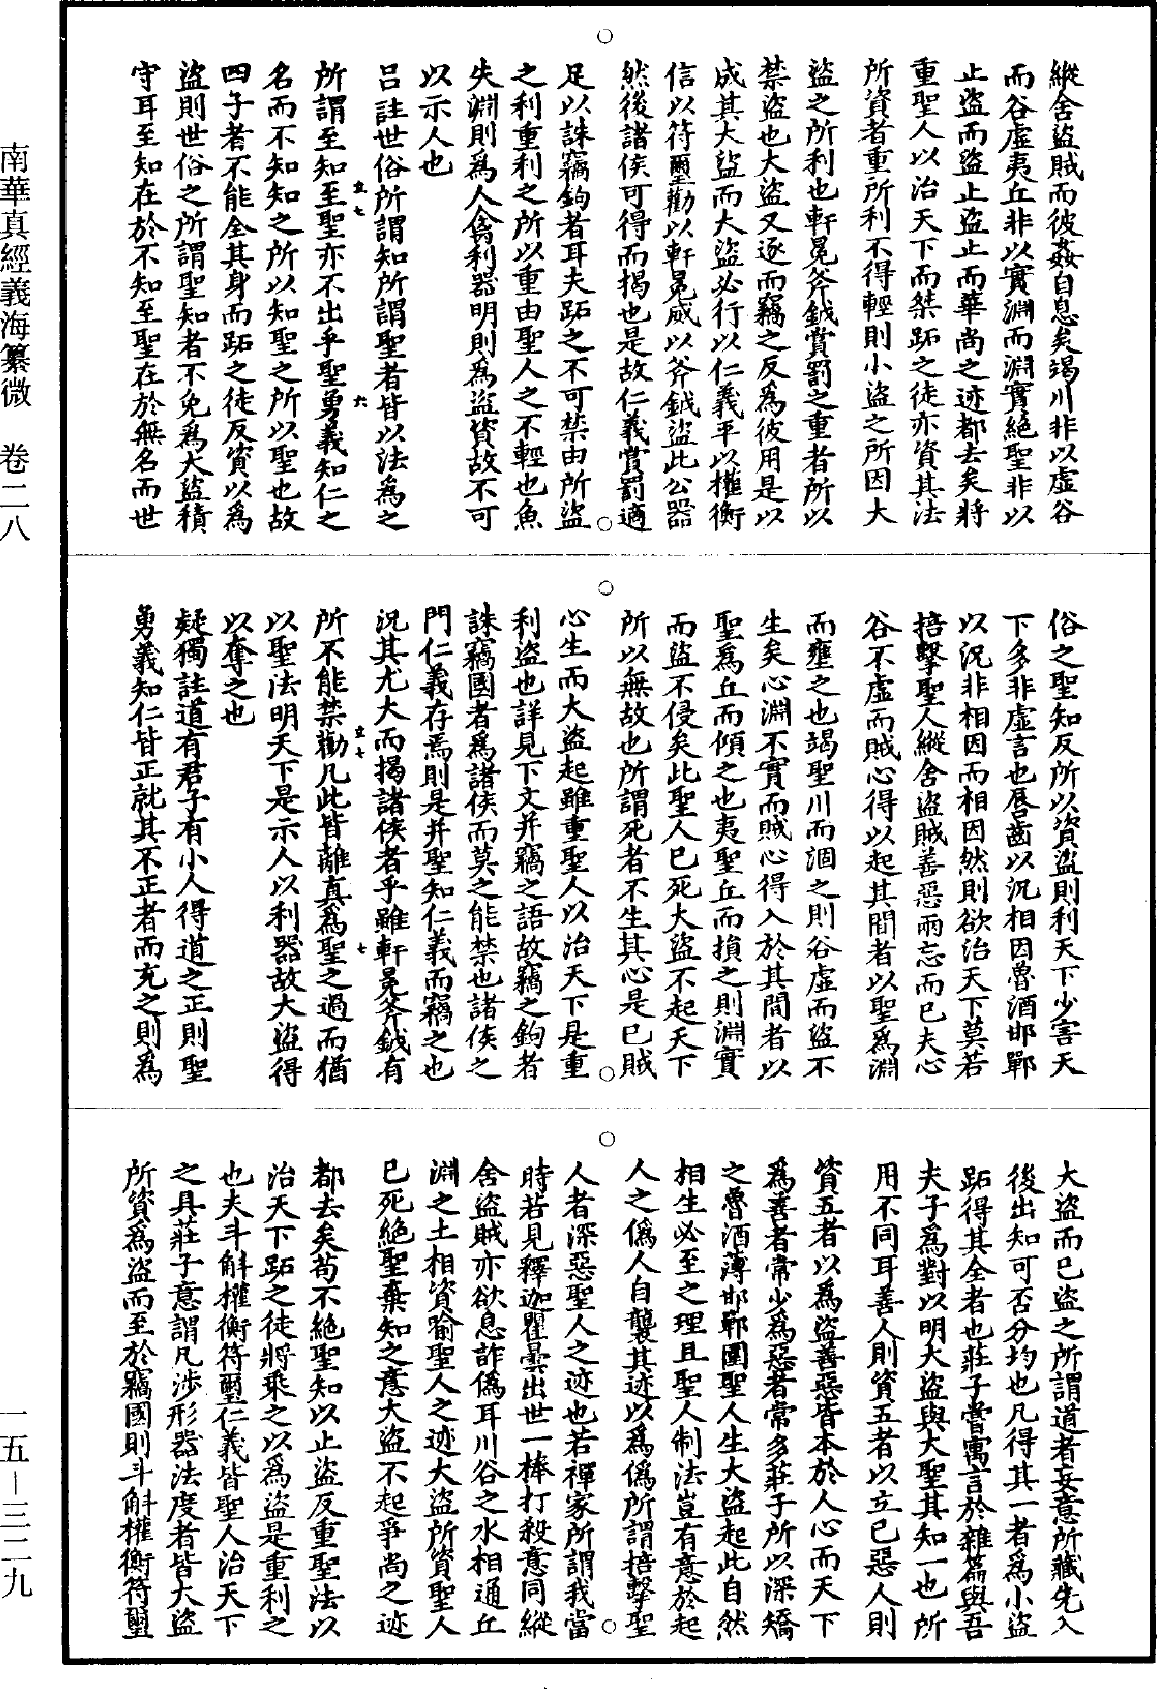 縱舍盜賊而彼姦自息矣竭川非以虛谷
而谷虛夷丘非以實淵而淵實絕聖非以
止盜而盜止盜止而華尚之迹都去矣將
重聖人以治天下而桀跖之徒亦資其法
所資者重所利不得輕則小盜之所因大
盜之所利也軒冕斧鉞賞罰之重者所以
禁盜也大盜又逐而竊之反爲彼用是以
成其大盜而大盜必行以仁義平以權衡
信以符璽勸以軒冕威以斧鉞盜此公器
然後諸侯可得而揭也是故仁義賞罰適
足以誅竊鉤者耳夫跖之不可禁由所盜
之利重利之所以重由聖人之不輕也魚
失淵則爲人禽利器明則爲盜資故不可
以示人也
呂註世俗所謂知所謂聖者皆以法爲之
所謂至知至聖亦不出乎聖勇義知仁之
名而不知知之所以知聖之所以聖也故
四子者不能全其身而跖之徒反資以爲
盜則世俗之所謂聖知者不免爲大盜積
守耳至知在於不知至聖在於無名而世
俗之聖知反所以資盜則利天下少害天
下多非虛言也唇齒以況相因魯酒邯鄲
以況非相因而相因然則欲治天下莫若
掊擊聖人縱舍盜賊善惡兩忘而已夫心
谷不虛而賊心得以起其間者以聖爲淵
而壅之也竭聖川而涸之則谷虛而盜不
生矣心淵不實而賊心得入於其間者以
聖爲丘而傾之也夷聖丘而損之則淵實
而盜不侵矣此聖人已死大盜不起天下
所以無故也所謂死者不生其心是已賊
心生而大盜起雖重聖人以治天下是重
利盜也詳見下文并竊之語故竊之鉤者
誅竊國者爲諸侯而莫之能禁也諸侯之
門仁義存焉則是并聖知仁義而竊之也
況其尤大而揭諸侯者乎雖軒冕斧鉞有
所不能禁勸凡此皆離真爲聖之過而猶
以聖法明天下是示人以利器故大盜得
以奪之也
疑獨註道有君子有小人得道之正則聖
勇義知仁皆正就其不正者而充之則爲
大盜而已盜之所謂道者妄意所藏先入
後出知可否分均也凡得其一者爲小盜
跖得其全者也莊子嘗寓言於雜篇與吾
夫子爲對以明大盜與大聖其知一也所
用不同耳善人則資五者以立已惡人則
資五者以爲盜善惡皆本於人心而天下
爲善者常少爲惡者常多莊子所以深矯
之魯酒薄邯鄲圍聖人生大盜起此自然
相生必至之理且聖人制法豈有意於起
人之僞人自襲其迹以爲僞所謂掊擊聖
人者深惡聖人之迹也若禪家所謂我當
時若見釋迦瞿曇出世一棒打殺意同縱
舍盜賊亦欲息詐僞耳川谷之水相通丘
淵之土相資喻聖人之迹大盜所資聖人
已死絕聖棄知之意大盜不起爭尚之迹
都去矣苟不絕聖知以止盜反重聖法以
治天下跖之徒將乘之以爲盜是重利之
也夫斗斛權衡符璽仁義皆聖人治天下
之具莊子意謂凡涉形器法度者皆大盜
所資爲盜而至於竊國則斗斛權衡符璽
南華真經義海纂微　卷二八
一五—三二九